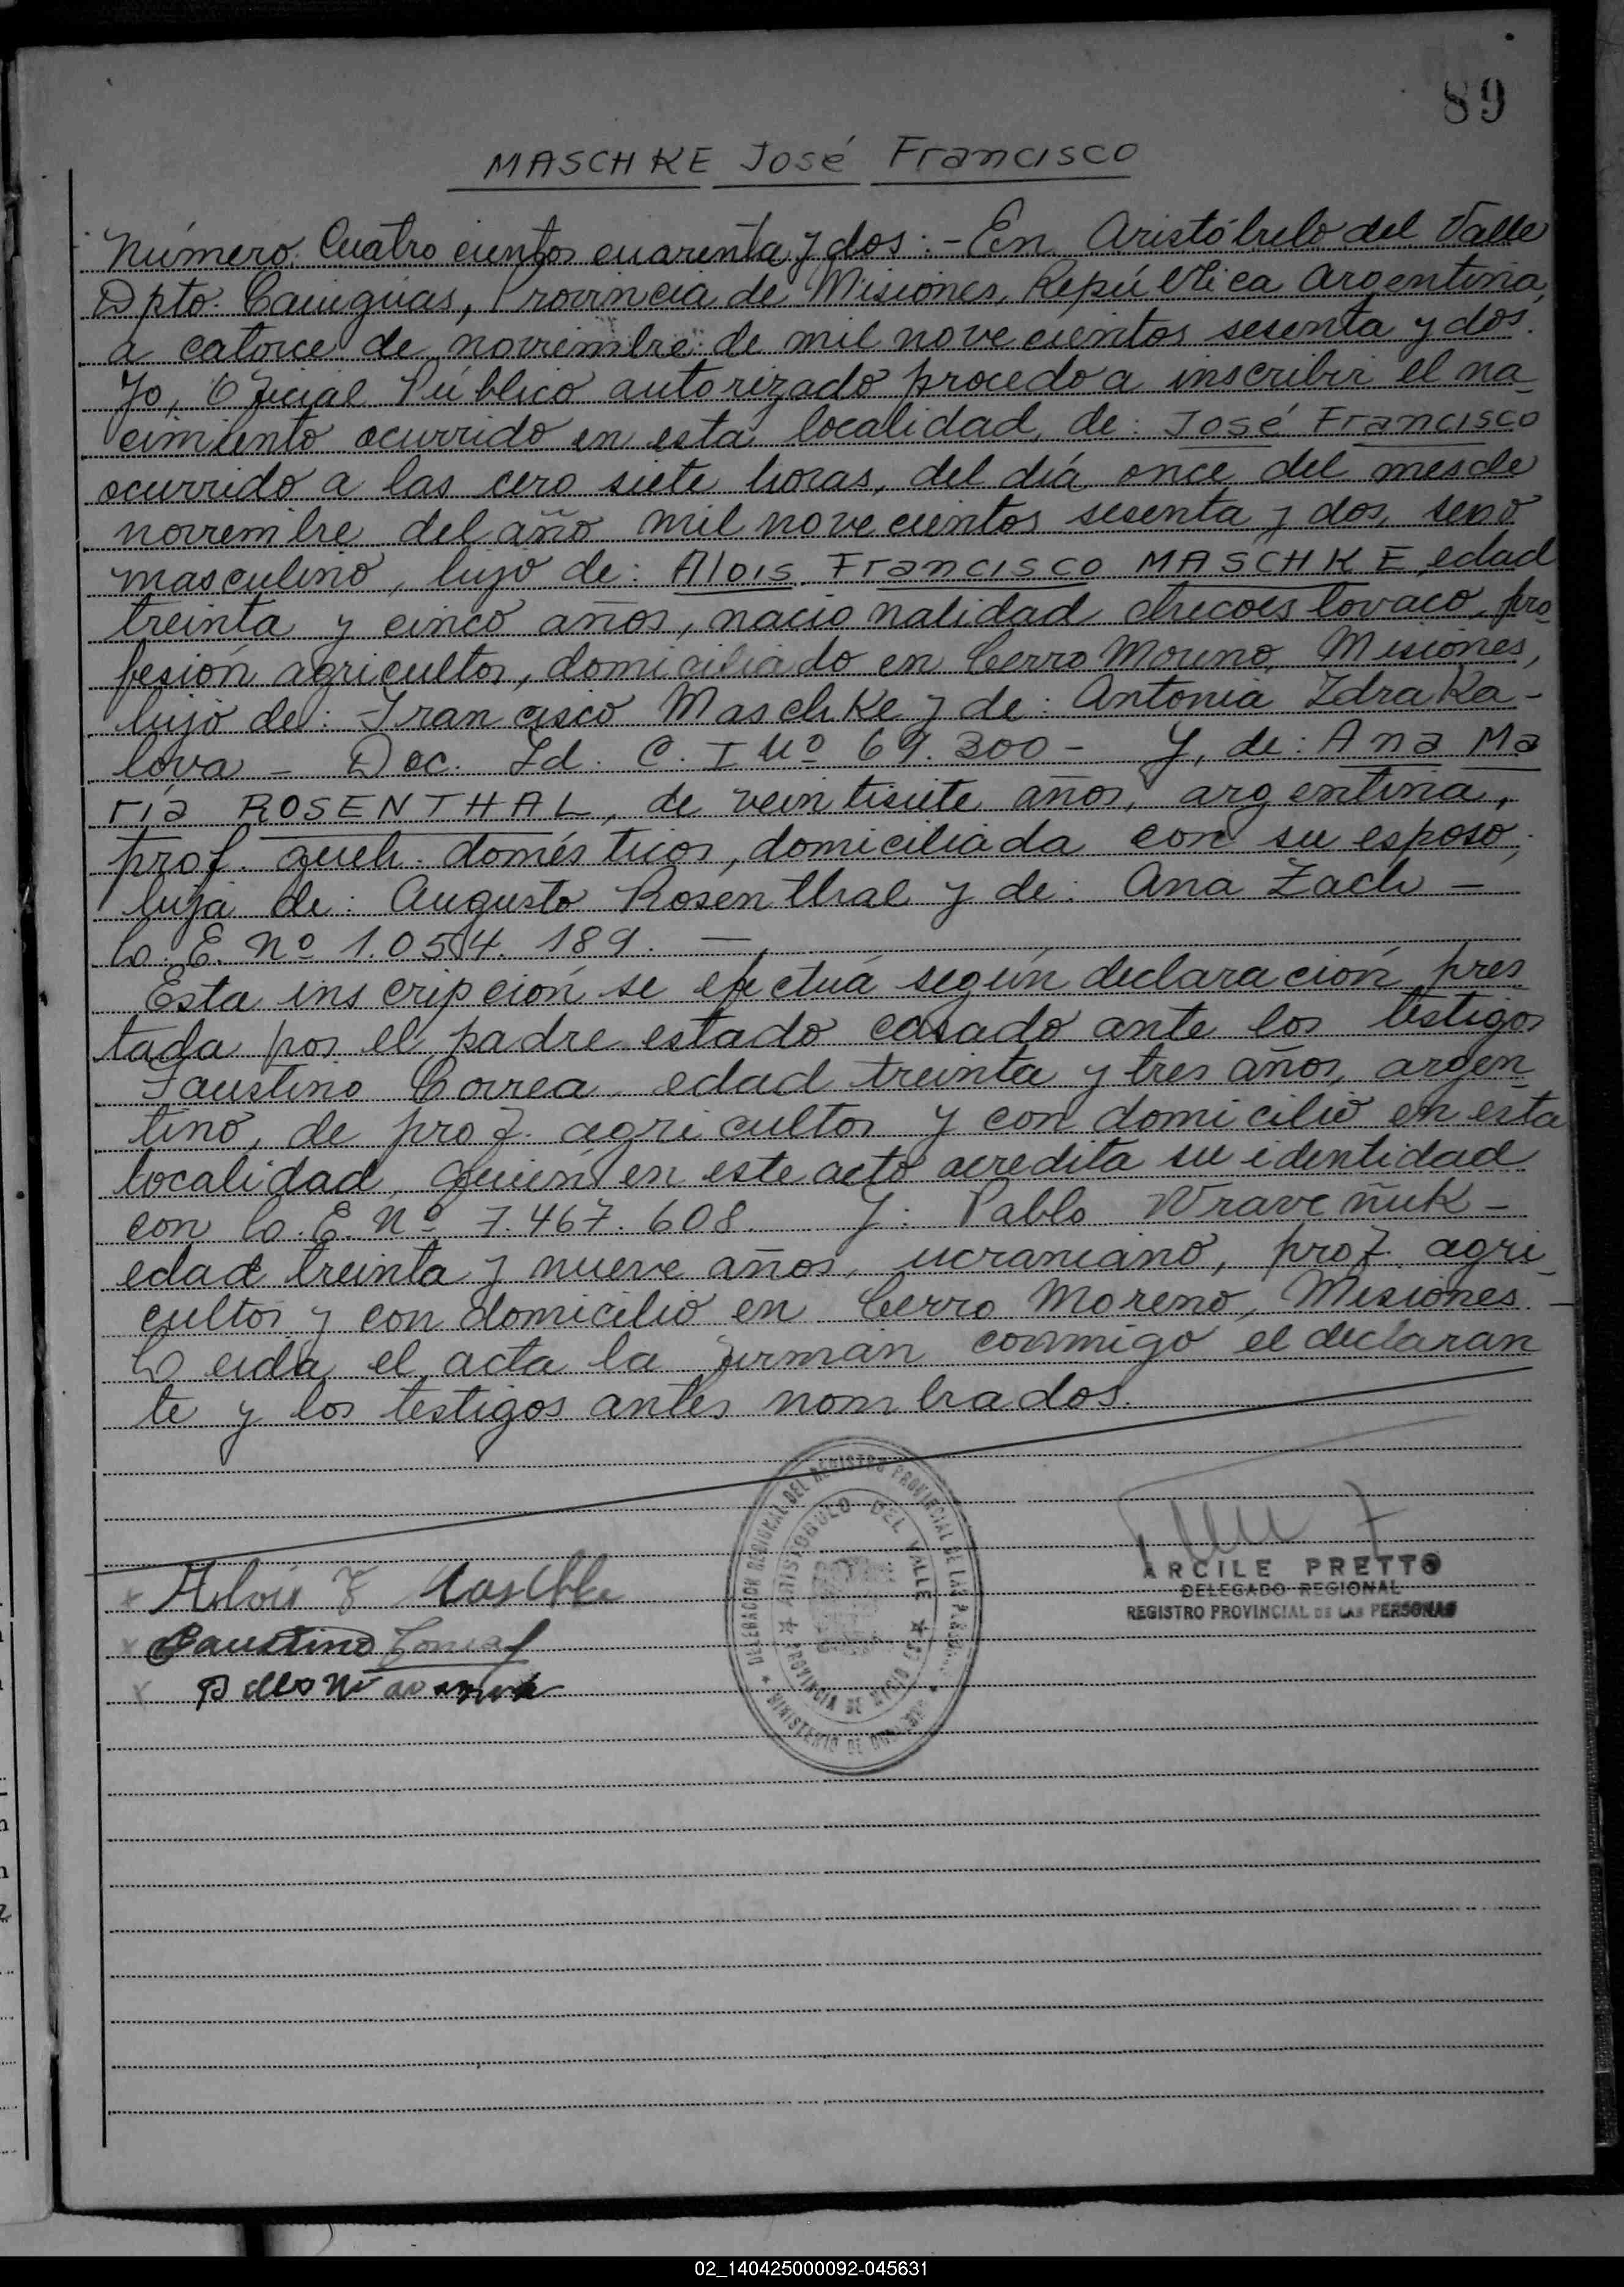 89
MASCHKE José Francisco
Número Cuatrocientos cuarenta y dos:- En Aristóbulo del Valle
Dpto. Cainguas, Provincia de Misiones, República Argentina,
a catorce de noviembre de mil novecientos sesenta y dos.
Yo, Oficial Público autorizado procedo a inscribir el na_
cimiento ocurrido en esta localidad, de: José Francisco
ocurrido a las cero siete horas, del día once del mes de
noviembre del año mil novecientos sesenta y dos, sexo
masculino, hijo de: Alois Francisco MASCHKE, edad
treinta y cinco años, nacionalidad checoeslovaco, pro_
fesión agricultor, domiciliado en Cerro Moreno, Misiones,
hijo de: Francisco Maschke y de: Antonia Zdraka-
lova - Doc. Id. C. I Nº 69.300 - Y, de: Ana Ma
ría ROSENTHAL, de veintisiete años, argentina,
prof. queh. domésticos, domiciliada con su esposo,
hija de: Augusto Rosenthal y de: Ana Zach -
L. E. Nº 1.054.189. -
Esta inscripción se efectúa según declaración pres_
tada por el padre estado casado ante los testigos
Faustino Correa edad treinta y tres años, argen_
tino, de prof. agricultor y con domicilio en esta
localidad, quien en este acto acredita su identidad
con L. E. Nº 7.467.608. Y: Pablo Wravcñuk -
edad treinta y nueve años, ucraniano, prof. agri_
cultor y con domicilio en Cerro Moreno, Misiones. -
Leida el acta la firman conmigo el declaran
te y los testigos antes nombrados.
DELEGACION REGIONAL DEL REGISTRO PROVINCIAL DE LAS
ARISTOBULO DEL VALLE
PROVINCIA DE
MINISTERIO DE
ARCILE PRETTO
DELEGADO REGIONAL
REGISTRO PROVINCIAL DE LAS PERSONAS
x Alois F Maschke
x Faustino Correa
x
02_140425000092-045631